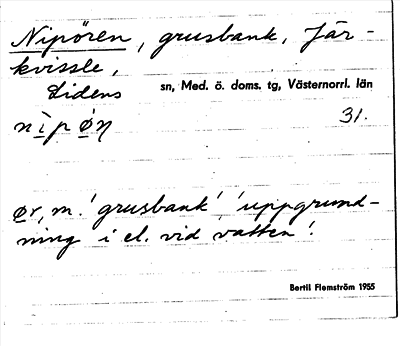 Nipören, grusbank, Jär-
kvissle,
Lidens sn, Med. ö. doms. tg, Västernorrl. län
nìpø̀n 31.
ør, m. 'grusbank', 'uppgrund-
ning i el. vid vatten'.
Bertil Flemström 1955